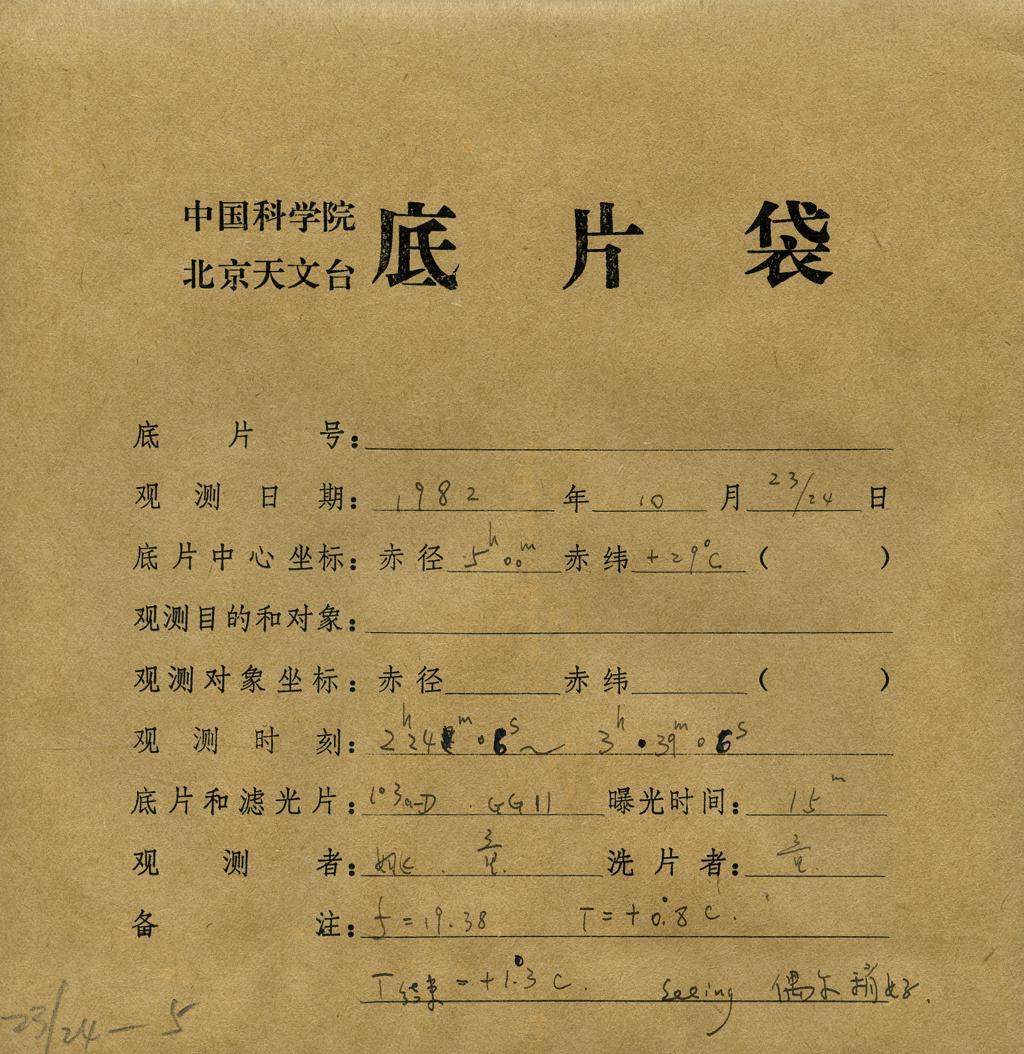 中国科学院
北京天文台 底片袋
底片号：
观测日期：1982年10月23/24日
底片中心坐标：赤径5h00m赤纬+29°C（ ）
观测目的和对象：
观测对象坐标：赤径 赤纬 （ ）
观测时刻：2h24m06s～3h39m06s
底片和滤光片：103a-D . GG11 曝光时间：15m
观测者：姚. 童. 洗片者：童.
备注：f=19.38 T=+0.8°C.
T结束=+1.3°C. Seeing 偶尔稍好.
23/24-5